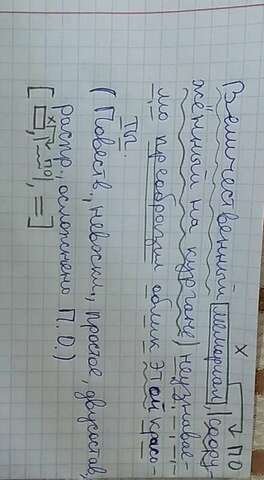 х ПО
Величественный мемориал, соору-
жённый на кургане, неузнавае-
мо преобразил облик этой красо-
ты.
(Повеств., невоскл., простое, двусостав,
распр., осложнено П.О.)
х ПО
[ , , = ]